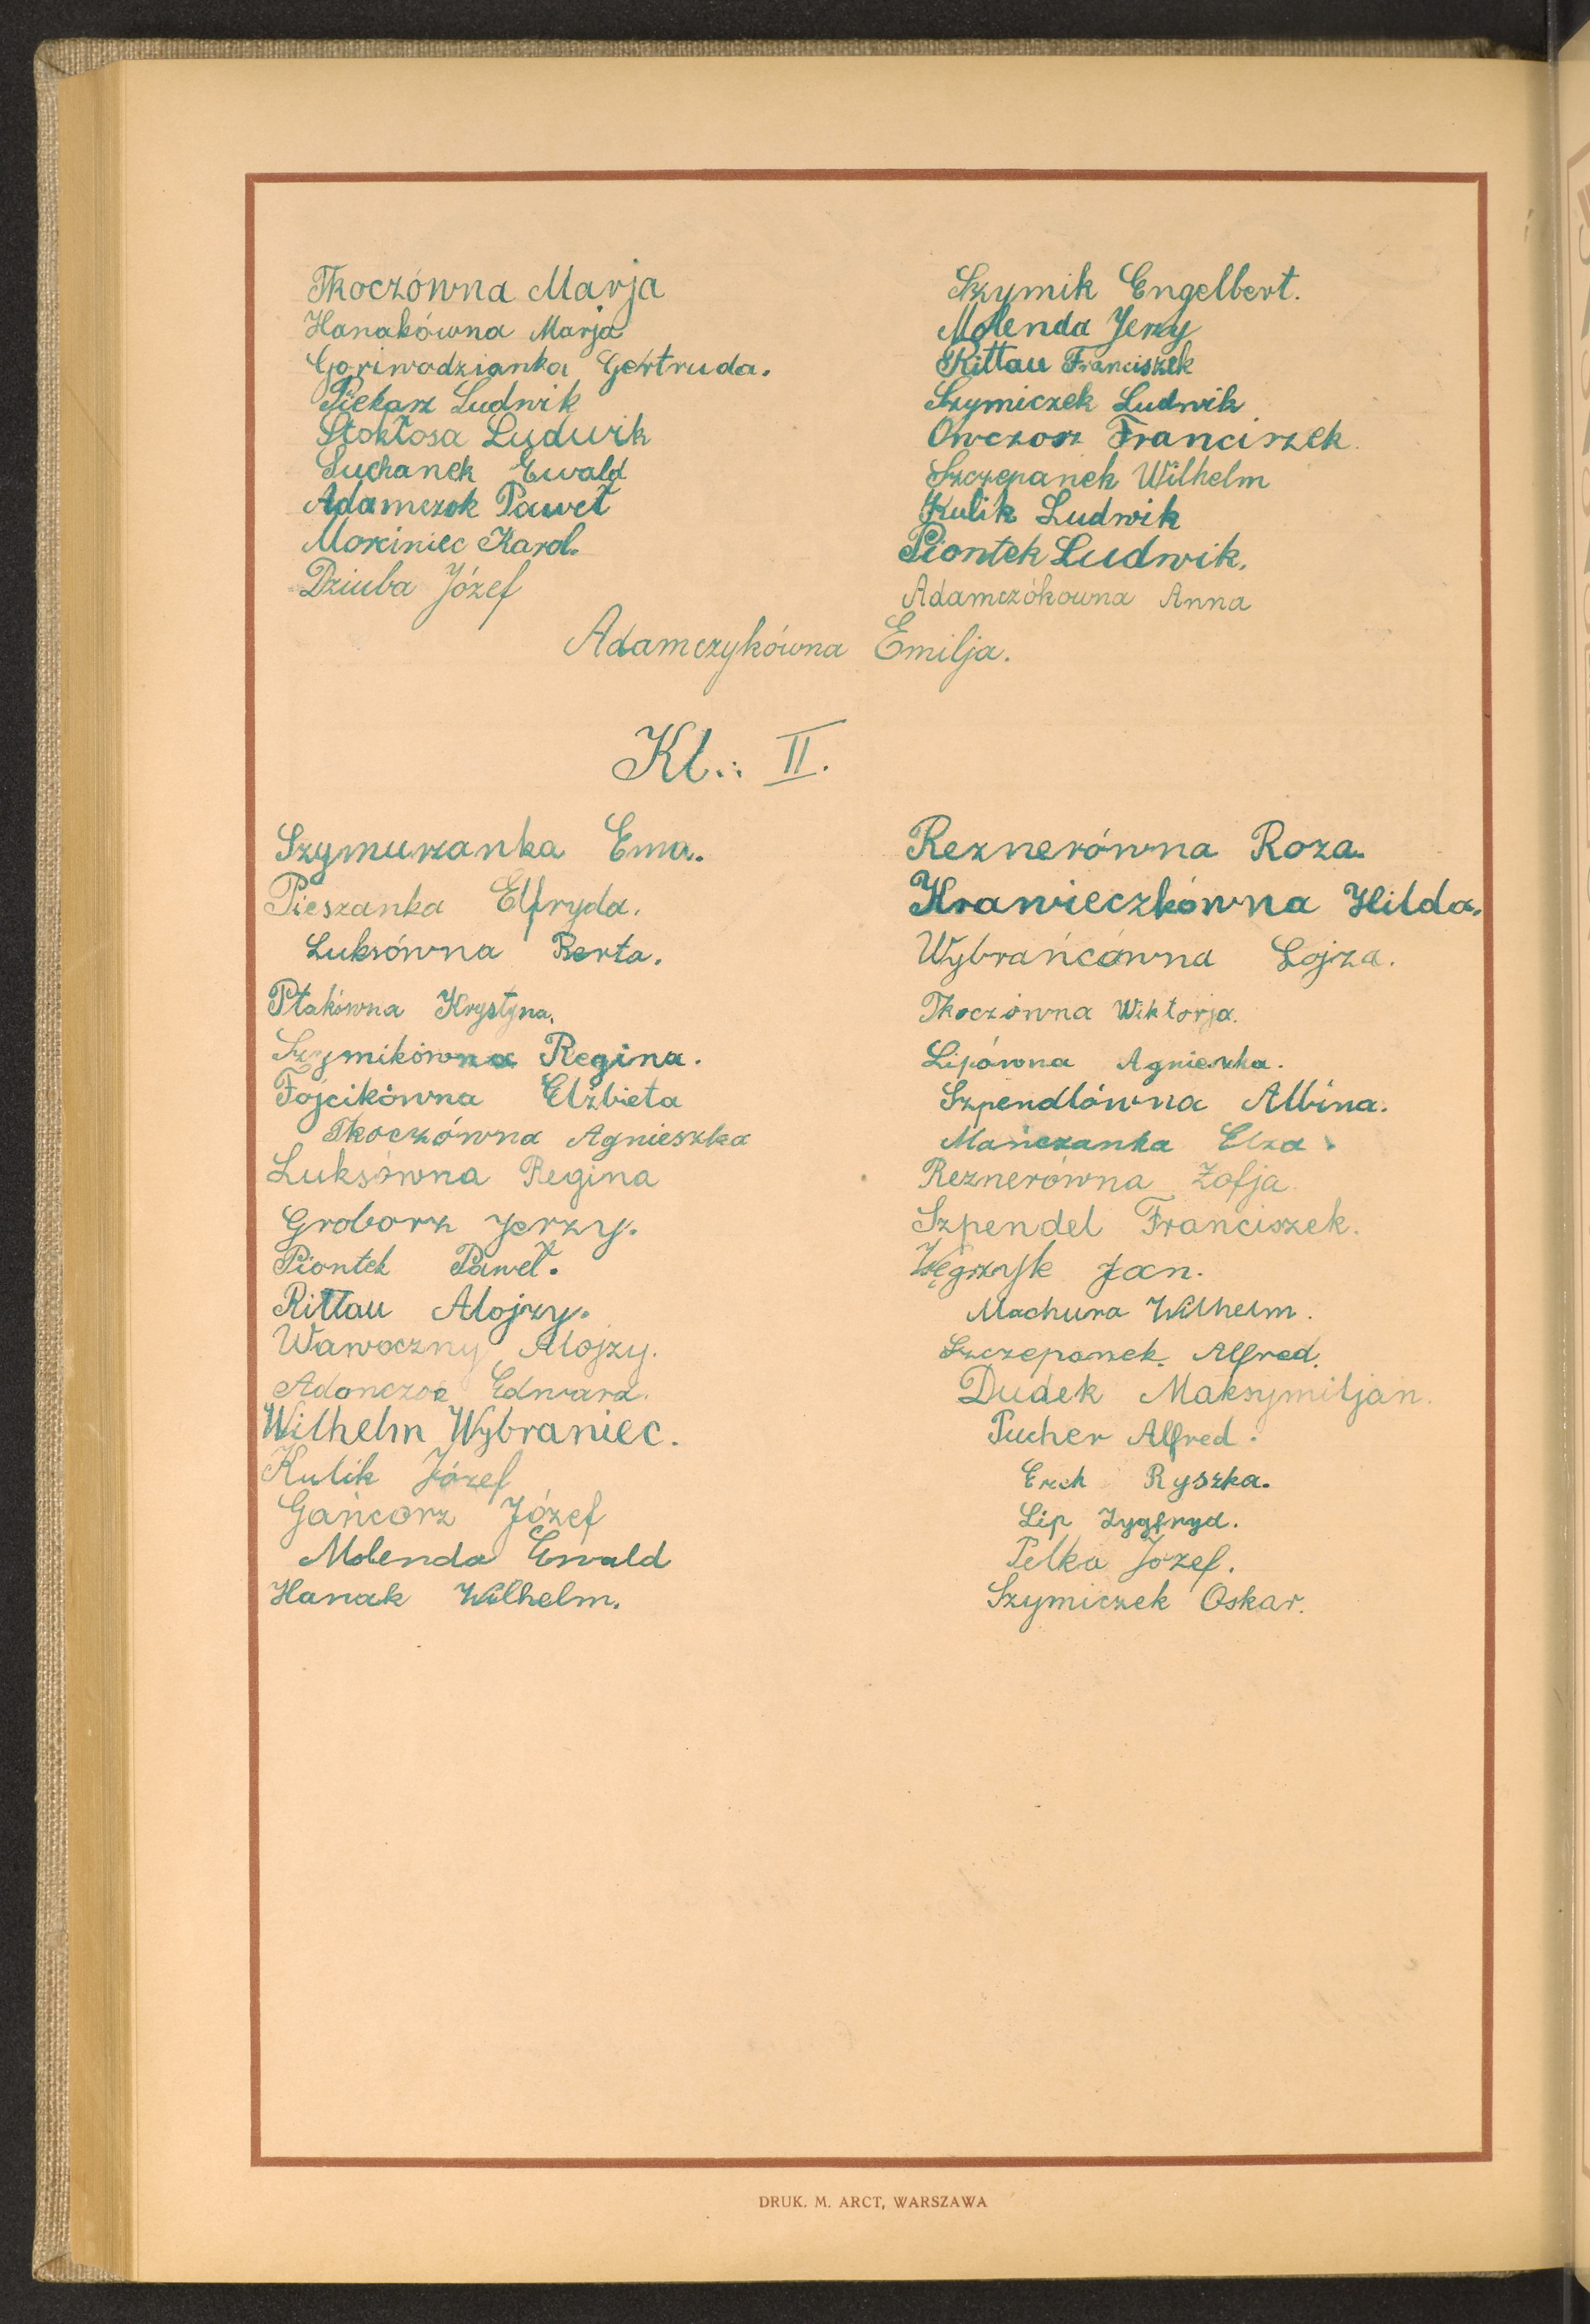 Tkoczówna Marja
Hanakówna Marja
Goriwodzianka Gertruda.
Piekarz Ludwik
Stokłosa Ludwik
Suchanek Ewald
Adamczok Paweł
Morciniec Karol.
Dziuba Józef
Szymik Engelbert.
Molenda Jerzy
Rittau Franciszek
Szymiczek Ludwik
Owczorz Franciszek
Szczepanek Wilhelm
Kulik Ludwik
Piontek Ludwik.
Adamczókowna Anna
Adamczykówna Emilja.
Kl.: II.
Szymurzanka Ema.
Pieszanka Elfryda.
Luksówna Berta.
Ptakówna Krystyna.
Szymikówna Regina.
Fojcikówna Elżbieta
Tkoczówna Agnieszka
Luksówna Regina
Groborz Jerzy.
Piontek Paweł.
Rittau Alojzy.
Wawoczny Alojzy.
Edward.
Wilhelm Wybraniec.
Kulik Józef
Gańcorz Józef
Molenda Ewald
Hanak Wilhelm.
Reznerówna Roza.
Krawieczkówna Hilda.
Wybrańcówna Lojza.
Tkoczówna Wiktorja.
Lipówna Agnieszka.
Szpendlówna Albina.
Mańczanka Elza.
Reznerówna Zofja
Szpendel Franciszek.
Węgrzyk Jan.
Machura Wilhelm.
Szczeponek Alfred.
Dudek Maksymiljan.
Pucher Alfred.
Erch Ryszka.
Lip Zygfryd.
Pelka Józef.
Szymiczek Oskar.
DRUK. M. ARCT, WARSZAWA